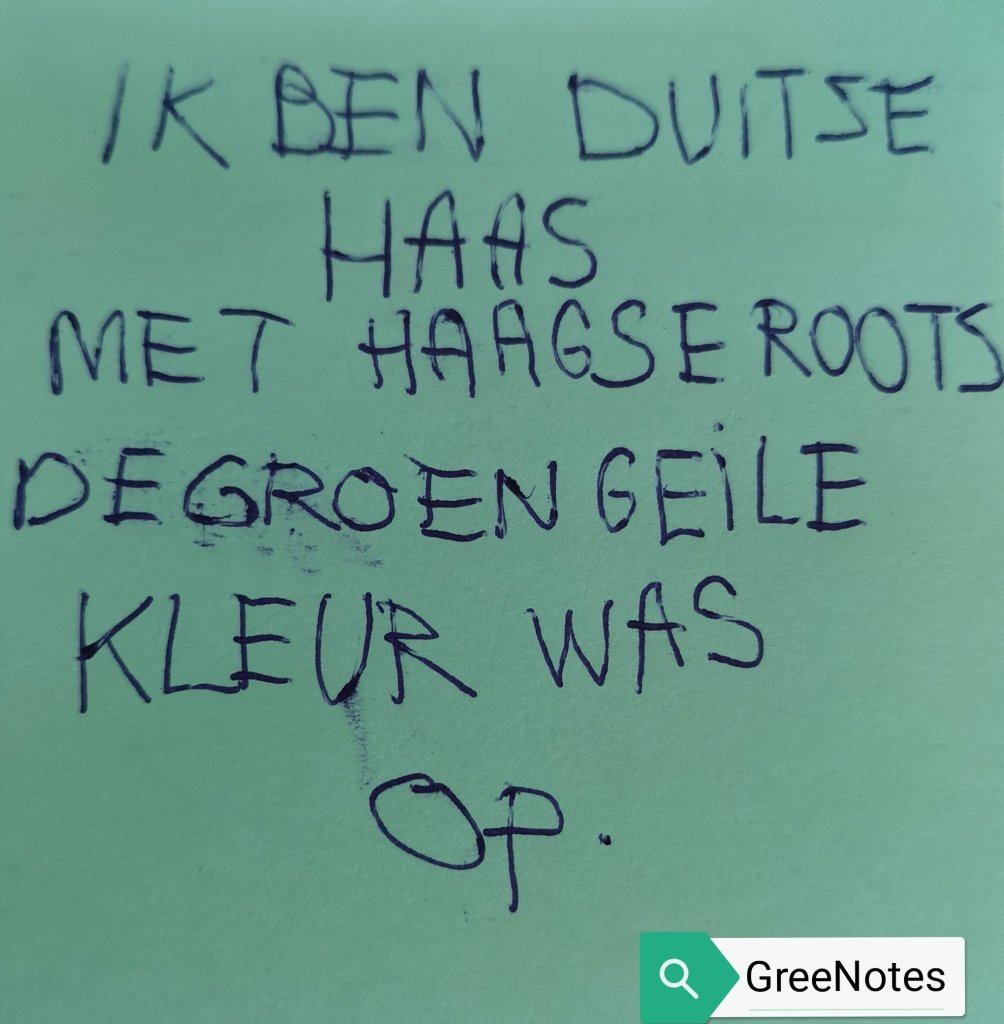 IK BEN DUITSE
HAAS
MET HAAGSE ROOTS
DE GROEN GEILE
KLEUR WAS
OP.
GreeNotes